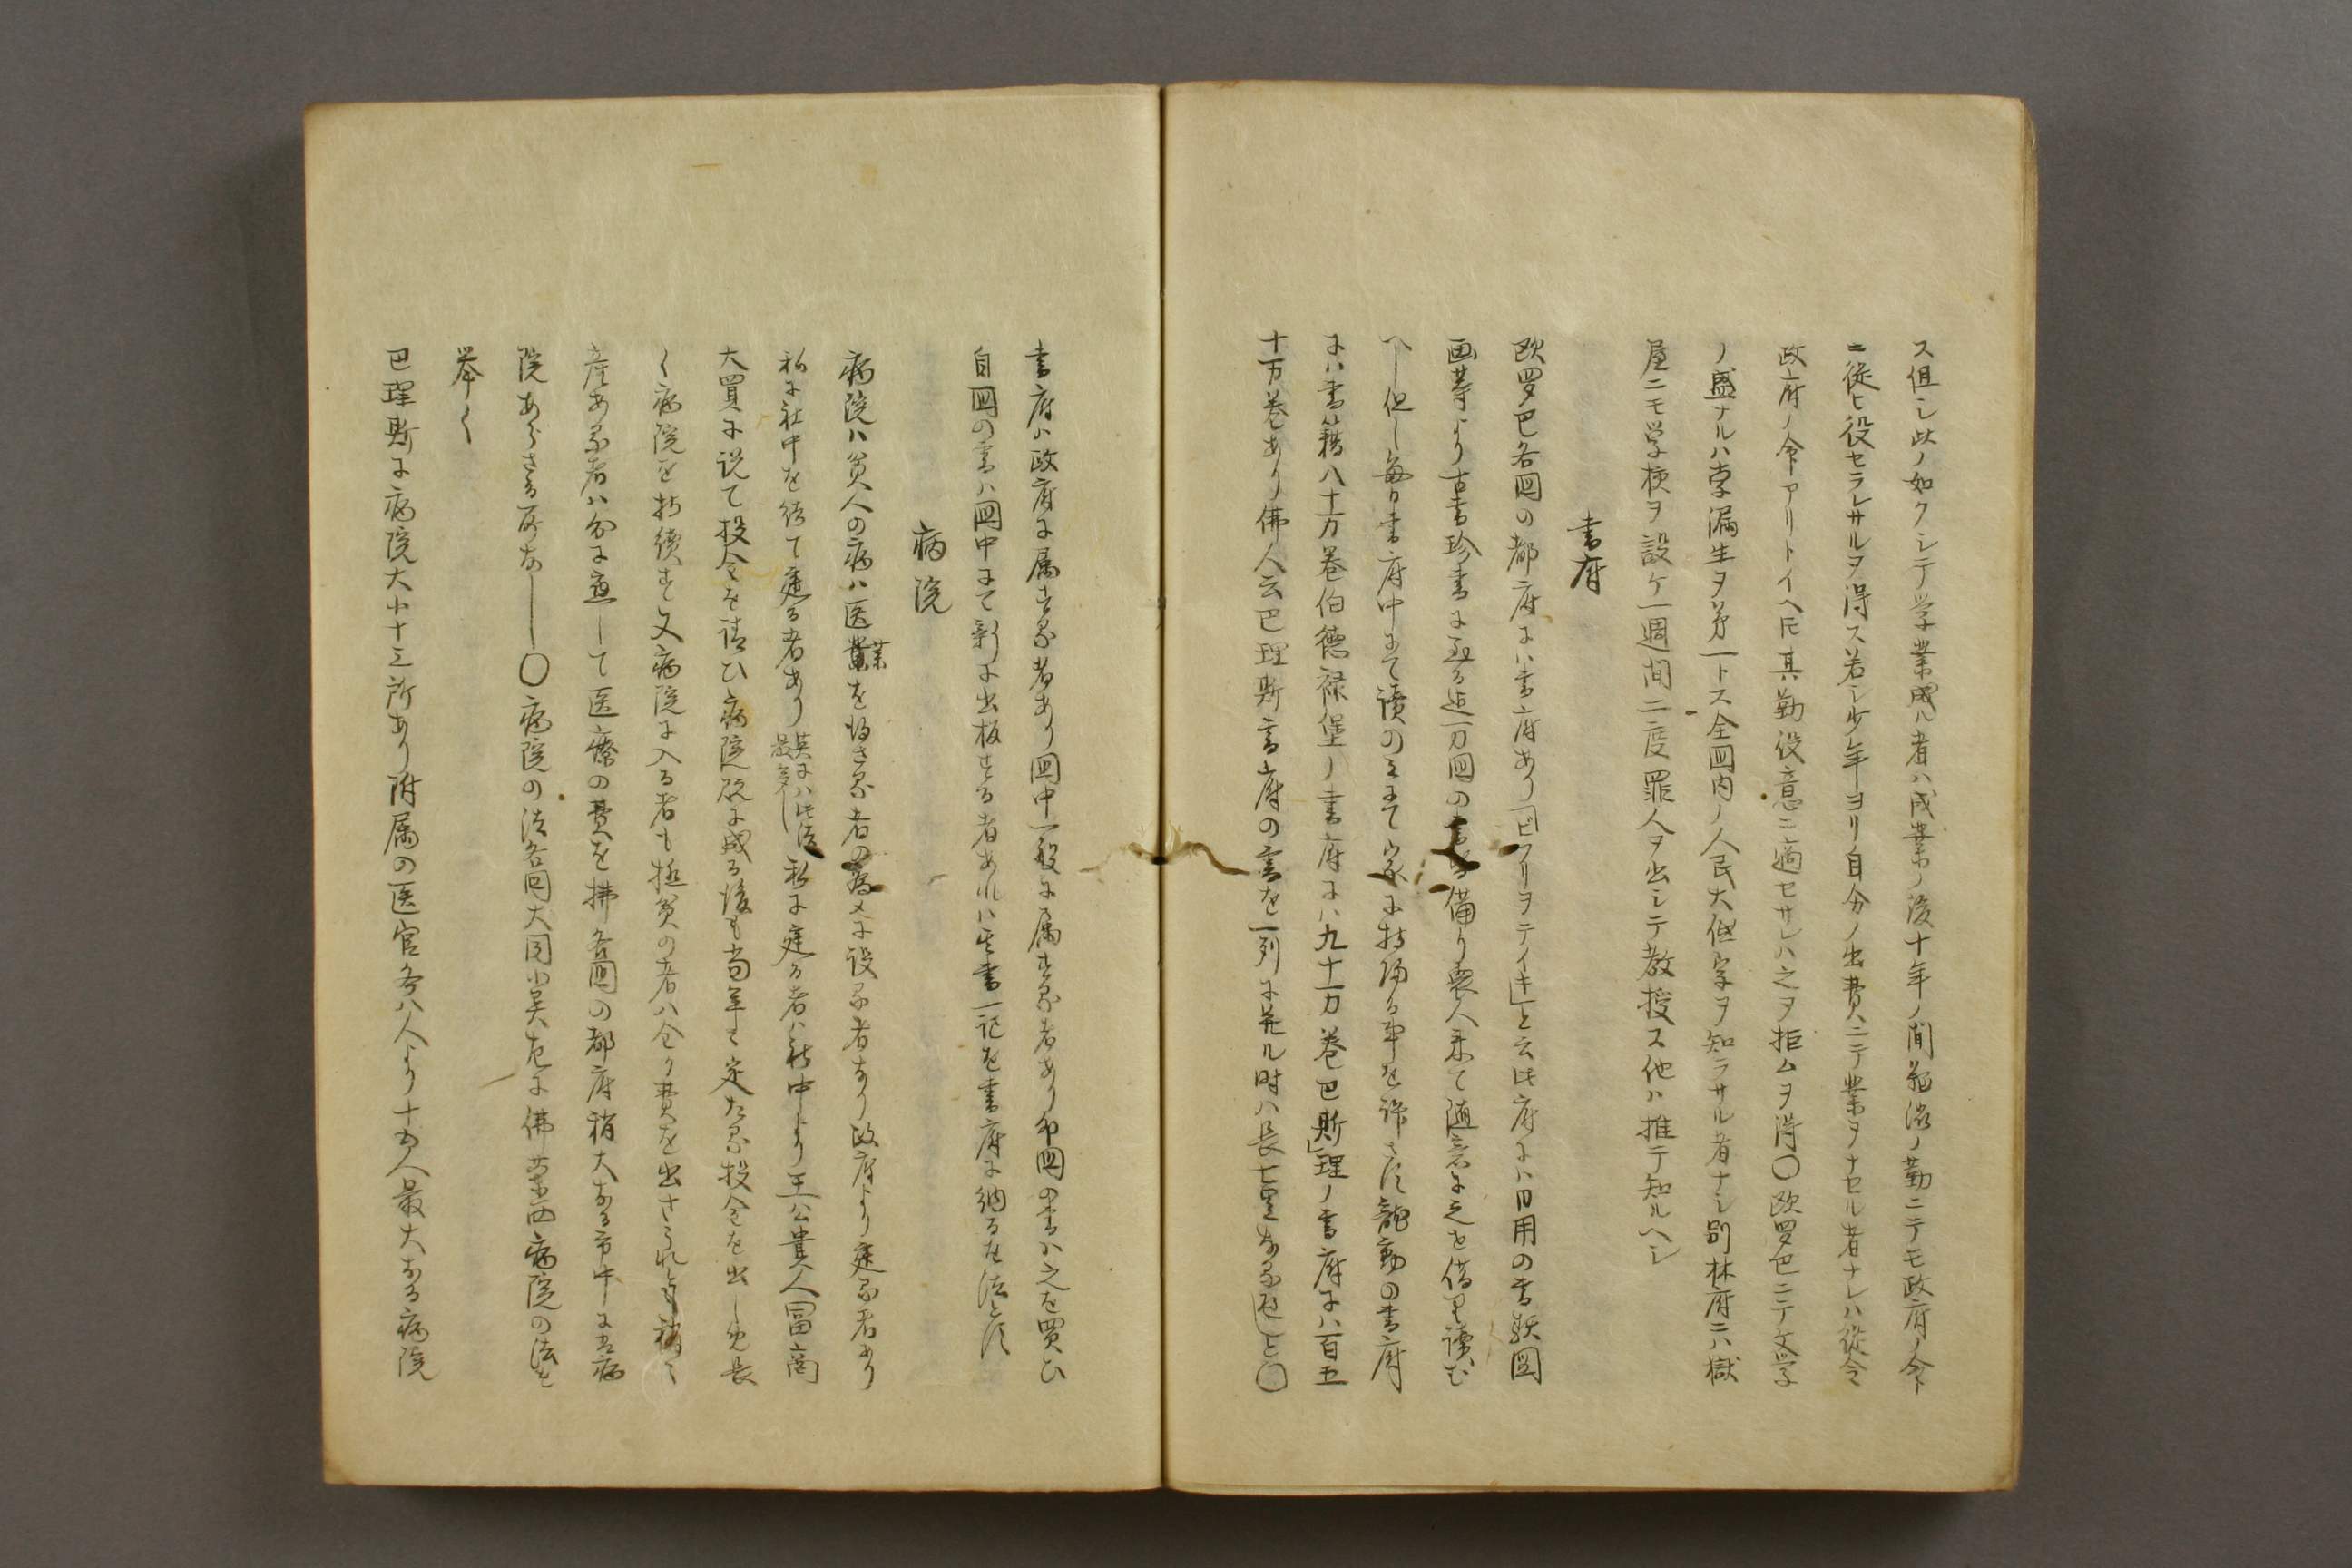 ス但シ此ノ如クシテ学業成ル者ハ成業ノ後十年ノ間ノ勤ニテモ政府ノ令
ニ従ヒ役セラレサルヲ得ス若シ少年ヨリ自分ノ出費ニテ業ヲナセル者ナレハ従令
政府ノ令アリトイヘ𪜈其勤役意ニ適セサレハ之ヲ拒ムヲ得〇欧罗巴ニテ文学
ノ盛ナルハ孛漏生ヲ第一トス全国内ノ人民大低字ヲ知ラサル者ナシ別林府ニハ獄
屋ニモ学校ヲ設ケ一週間二度罪人ヲ出シテ教授ス他ハ推テ知ルヘシ
書府
欧罗巴各国の都府にハ書府あり「ビフリヲテイキ」と云此府にハ日用の書類図
画等より古書珍書に至る迄万国の書皆備り衆人来て随意に之を借り読む
へし但し毎日書府中にて読のミにて家に持帰る事を許さす龍動の書府
にハ書籍八十万巻伯徳禄堡ノ書府にハ九十万巻巴斯」理ノ書府にハ百五
十万巻あり佛人云巴理斯書府の書を一列に並ル時ハ長七里なる可しと〇
書府ハ政府に属する者あり国中一般に属する者あり外国の書ハ之を買ひ
自国の書ハ国中にて新に出板する者あれハ其書一記を書府に納るを法とす
病院
病院ハ貧人の病ハ医業薬を得さる者の為メに設る者なり政府より建る者あり
私に社中を結て建る者あり英にハ此法最多し私に建る者ハ社中より王公貴人冨商
大買に説て投金を請ひ病院既に成る後も尚年々定たる投金を出し免長
く病院を持続す又病院に入る者も極貧の者ハ全く費を出さゝれとも稍々
産ある者ハ分に應して医療の費を拂各国の都府稍大なる市中にハ病
院あらさる所なし〇病院の法各国大同小異左に佛蘭西病院の法を
挙く
巴理斯に病院大小十三所あり附属の医官各八人より十五人最大なる病院